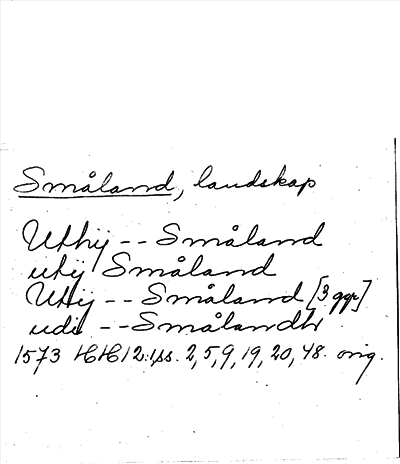 Småland, landskap
Uthij -- Småland
utij Småland
Uttij -- Småland [3 ggr]
udi -- Smålandh
1573 HH 12: 2, 5, 9, 19, 20, 48. orig.